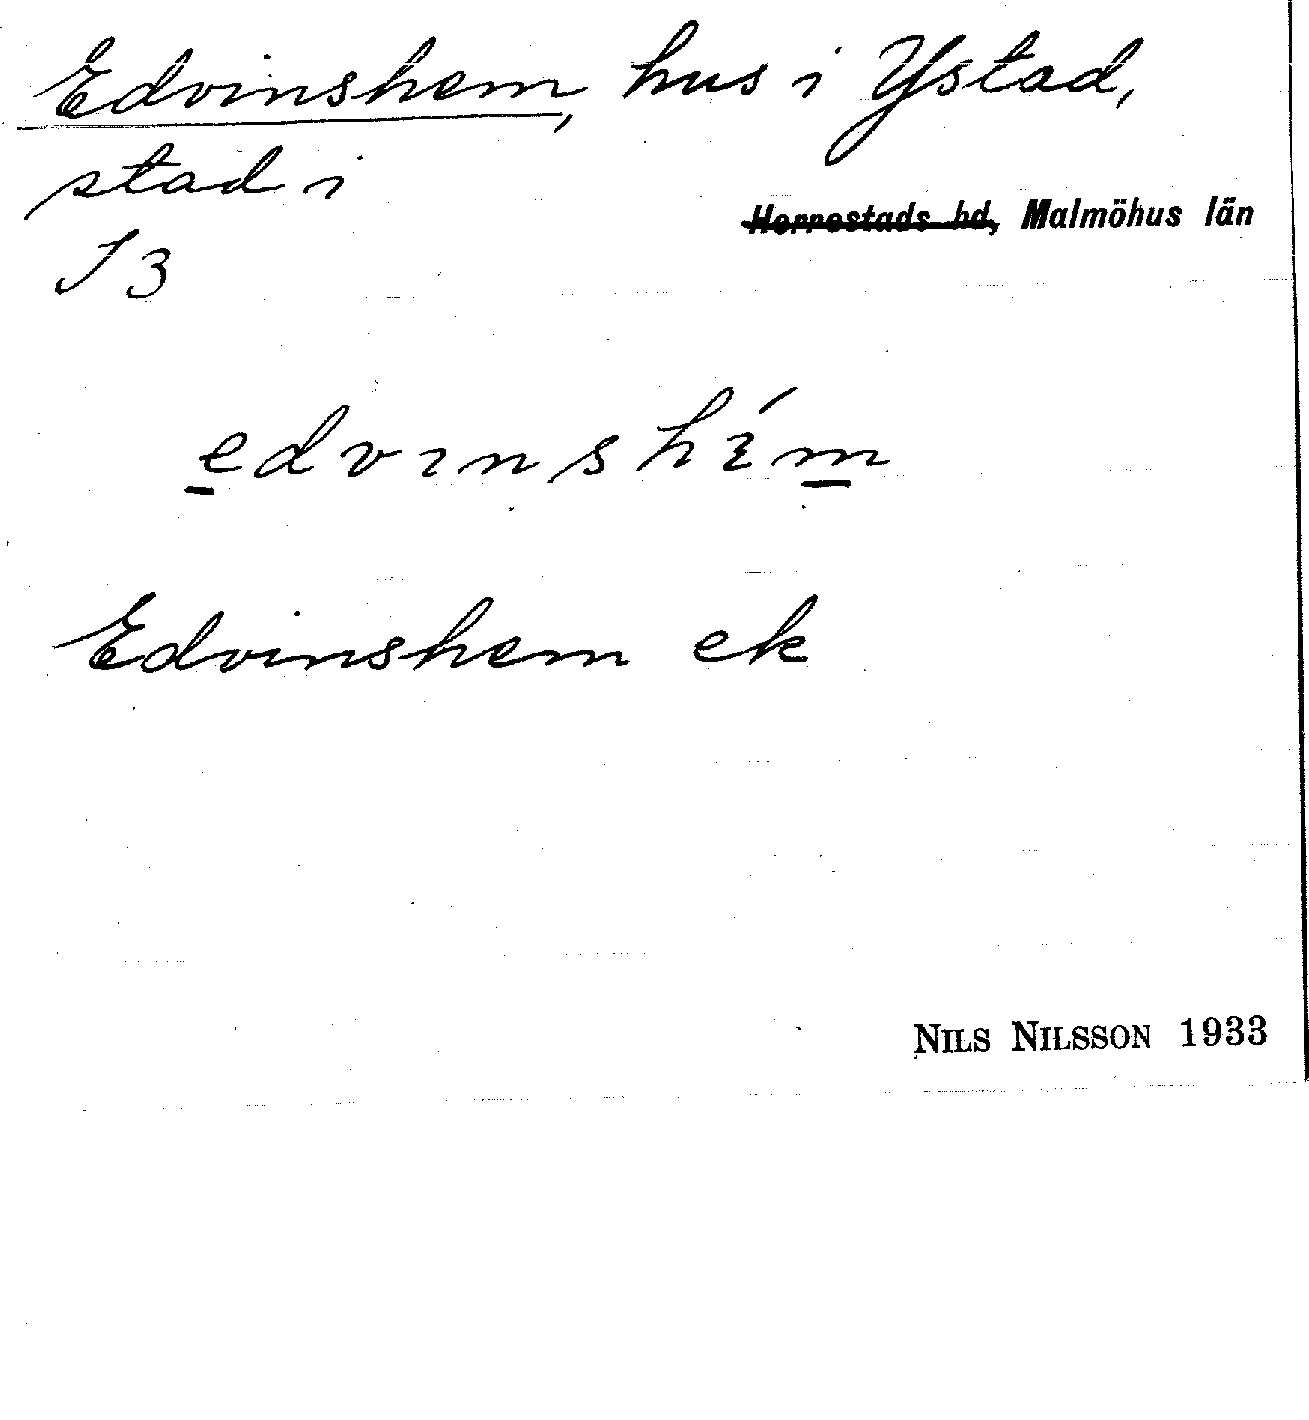 Edvinshem, hus i Ystad,
stad i
Herrestads hd, Malmöhus län
J 3
edvɪnshím
Edvinshem ek
NILS NILSSON 1933